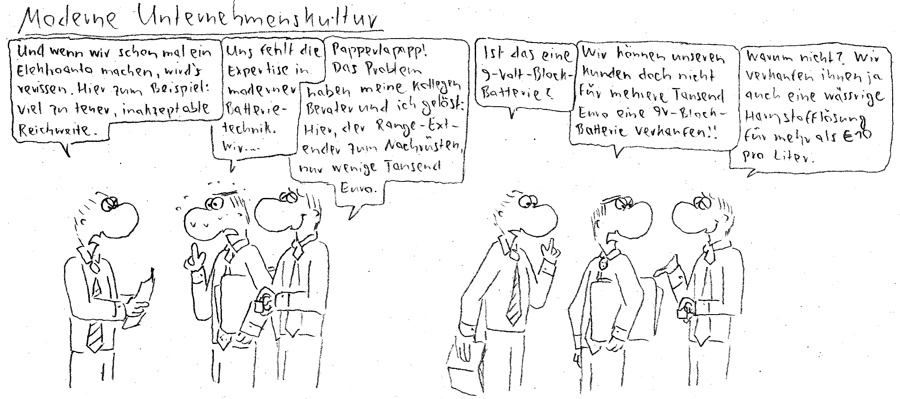 Moderne Unternehmenskultur
Und wenn wir schon mal ein
Elektroauto machen, wird's
verrissen. Hier zum Beispiel:
viel zu teuer, inakzeptable
Reichweite.
Uns fehlt die
Expertise in
moderner
Batterie-
technik.
Wir...
Papperlapapp!
Das Problem
haben meine Kollegen
Berater und ich gelöst.
Hier, der Range-Ext-
ender zum Nachrüsten,
nur wenige Tausend
Euro.
Ist das eine
9-Volt-Block-
Batterie?
Wir können unseren
Kunden doch nicht
für mehrere Tausend
Euro eine 9V-Block-
Batterie verkaufen!!
Warum nicht? Wir
verkaufen ihnen ja
auch eine wässrige
Harnstofflösung
für mehr als €10
pro Liter.